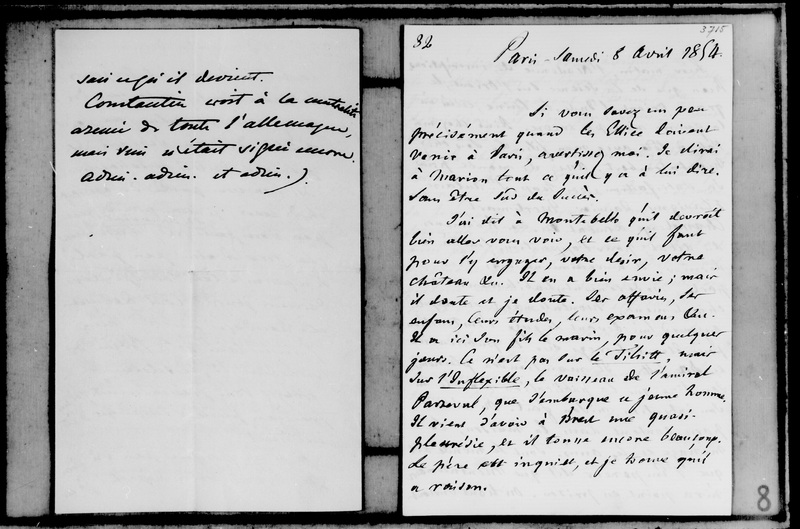 sans ce qu'il devient.
Constantin croit à la neutralité
armée de toute l'allemagne,
mais rien n'était signé encore.
Adieu. adieu. et adieu.)
32
3715
Paris - Samedi 8 Avril 1854.
Si vous savez un peu
précisément quand les Ellice doivent
venir à Paris, avertissez moi. Je dirai
à Marion tout ce qu'il y a à lui dire.
Sans être sûr du succès.
J'ai dit à Montebello qu'il devroit
bien aller vous voir, et ce qu'il faut
pour l'y engager, votre désir, votre
château &a. Il en a bien envie ; mais
il doute et je doute. Ses affaires, ses
enfans, leurs études, leurs examens &a.
Il a ici son fils le marin, pour quelques
jours. Ce n'est pas sur le Tilsitt, mais
sur l'Inflexible, le vaisseau de l'amiral
Parseval, que s'embarque ce jeune homme.
Il vient d'avoir à Brest une quasi-
pleurésie, et il tousse encore beaucoup.
Le père est inquiet, et je trouve qu'il
a raison.
8